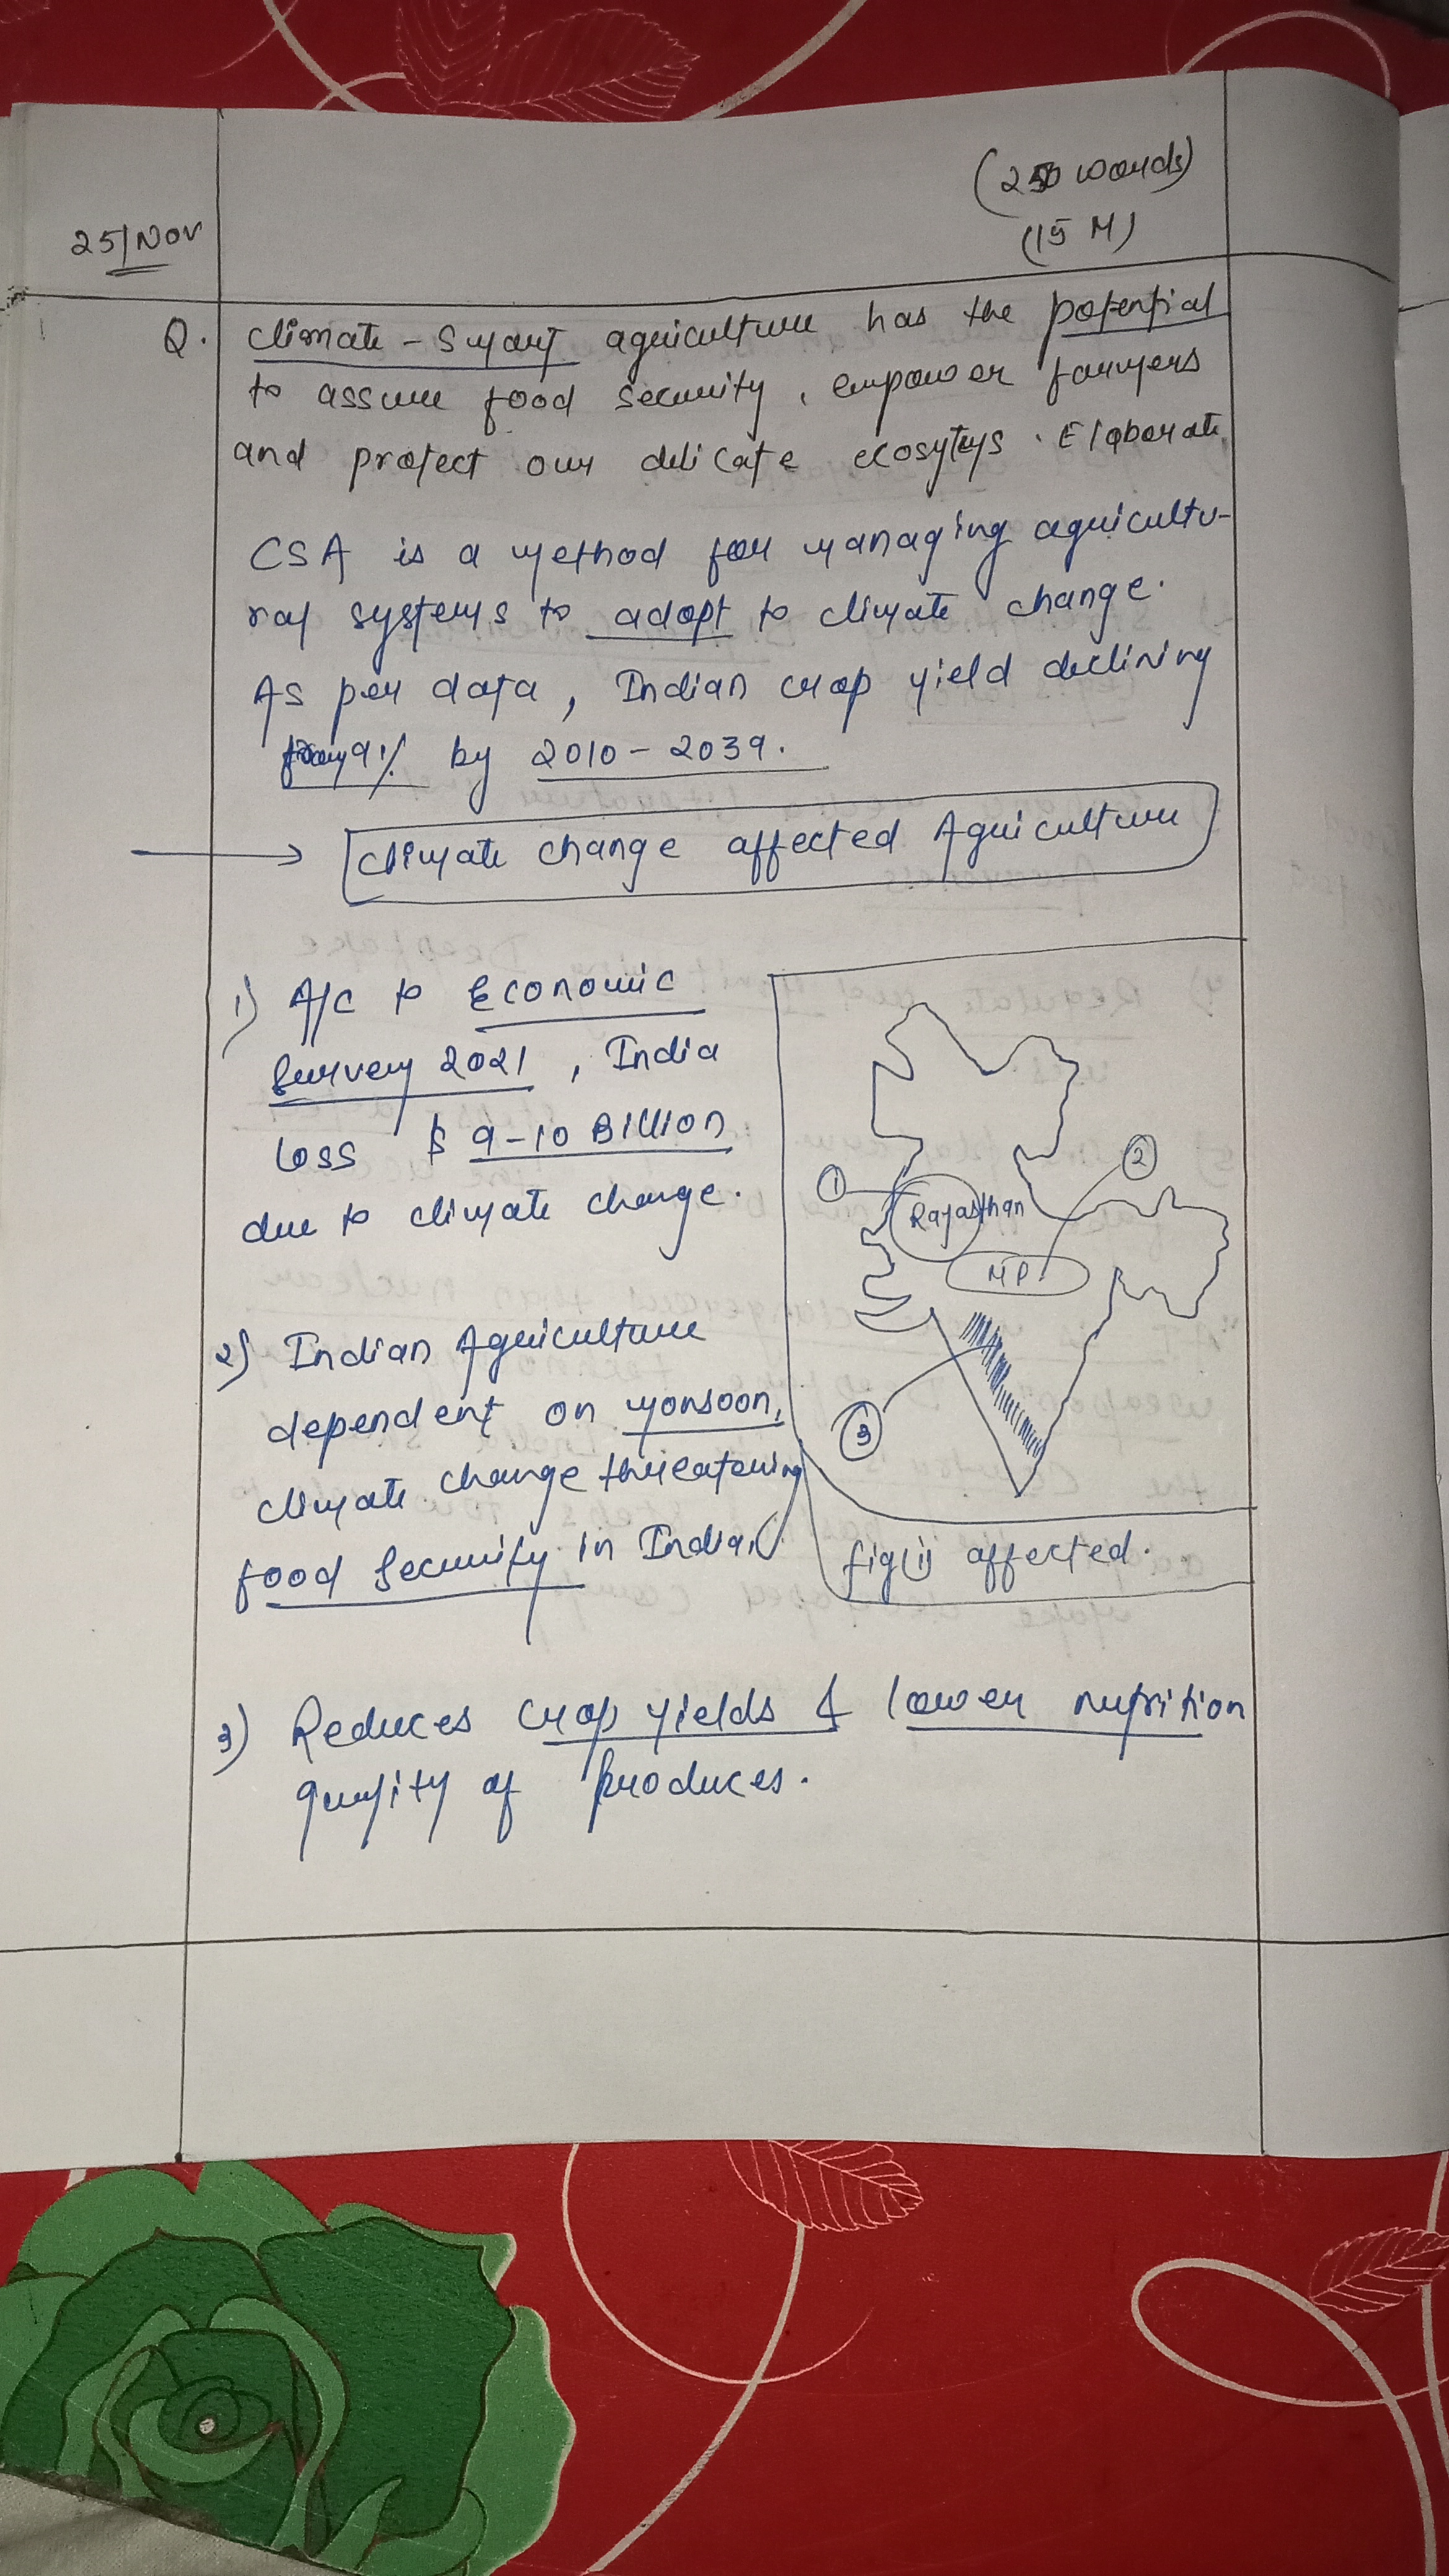 (250 words)
25/Nov
(15 M)
Q. Climate-Smart agriculture has the potential
to assure food security, empower farmers
and protect our delicate ecosytems. Elaborate
CSA is a method for managing agricultu-
ral systems to adopt to climate change.
As per data, Indian crop yield declining
9% by 2010-2039.
Climate change affected Agriculture
1) A/c to Economic
Survey 2021, India
loss $ 9-10 Billion
due to climate change.
2) Indian Agriculture
dependent on monsoon,
climate change threatening
food Security in India.
1
Rajasthan
2
MP
3
fig(i) affected.
3) Reduces crop yields & lower nutrition
quality of produces.